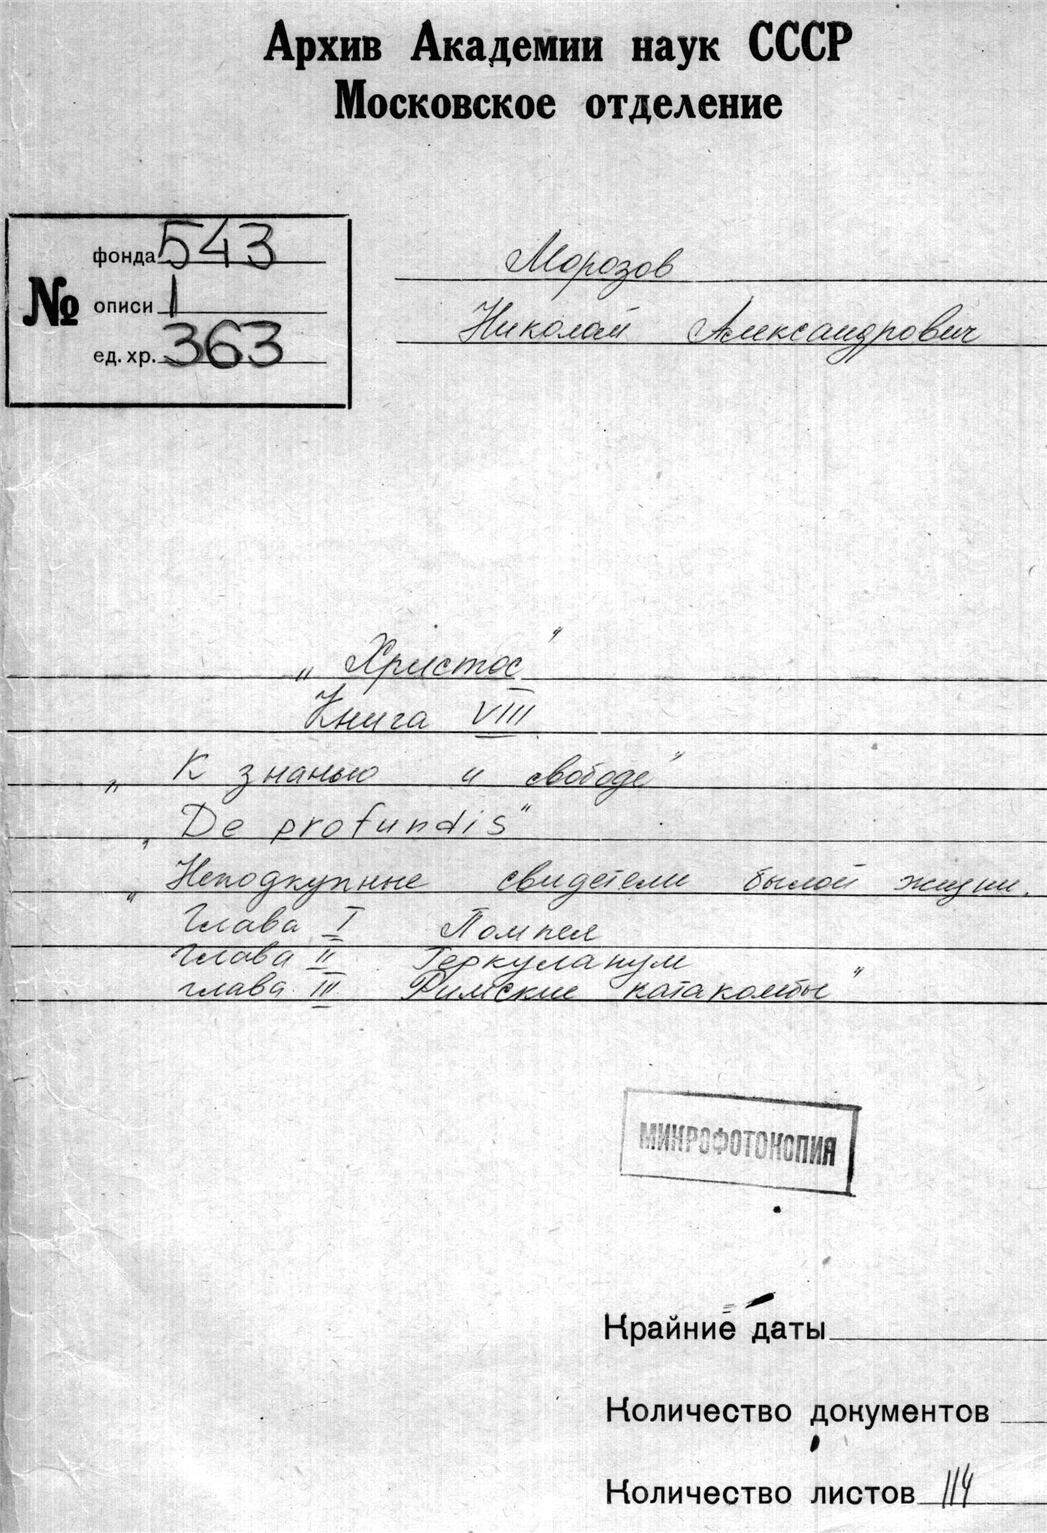 Архив Академии наук СССР
Московское отделение
№
фонда 543
описи 1
ед. хр. 363
Морозов
Николай Александрович
„Христос"
Книга VIII
„К знанью и свободе"
„De profundis"
„Неподкупные свидетели былой жизни.
Глава I Помпея
Глава II Геркуланум
глава III Римские катакомбы"
МИКРОФОТОКОПИЯ
Крайние даты
Количество документов
Количество листов 114